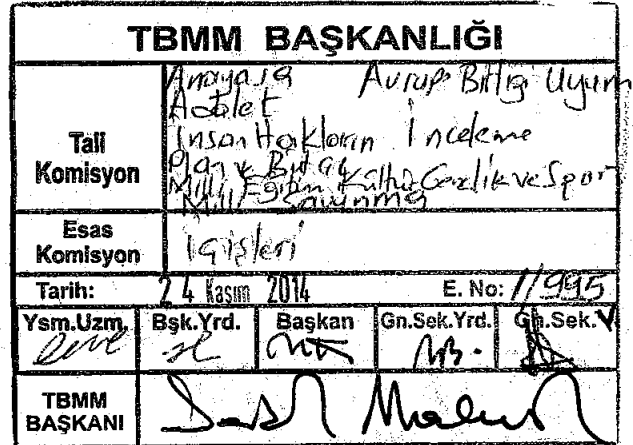 TBMM BAŞKANLIĞI
Tali Komisyon
Anayasa Avrupa Birliği Uyum
Adalet
İnsan Hakların İnceleme
Plan ve Bütçe
Milli Eğitim Kültür Gençlik ve Spor
Milli Savunma
Esas Komisyon İçişleri
Tarih: 24 Kasım 2014 E. No: 1/995
Ysm.Uzm. Bşk.Yrd. Başkan Gn.Sek.Yrd. Gn.Sek.V
TBMM BAŞKANI